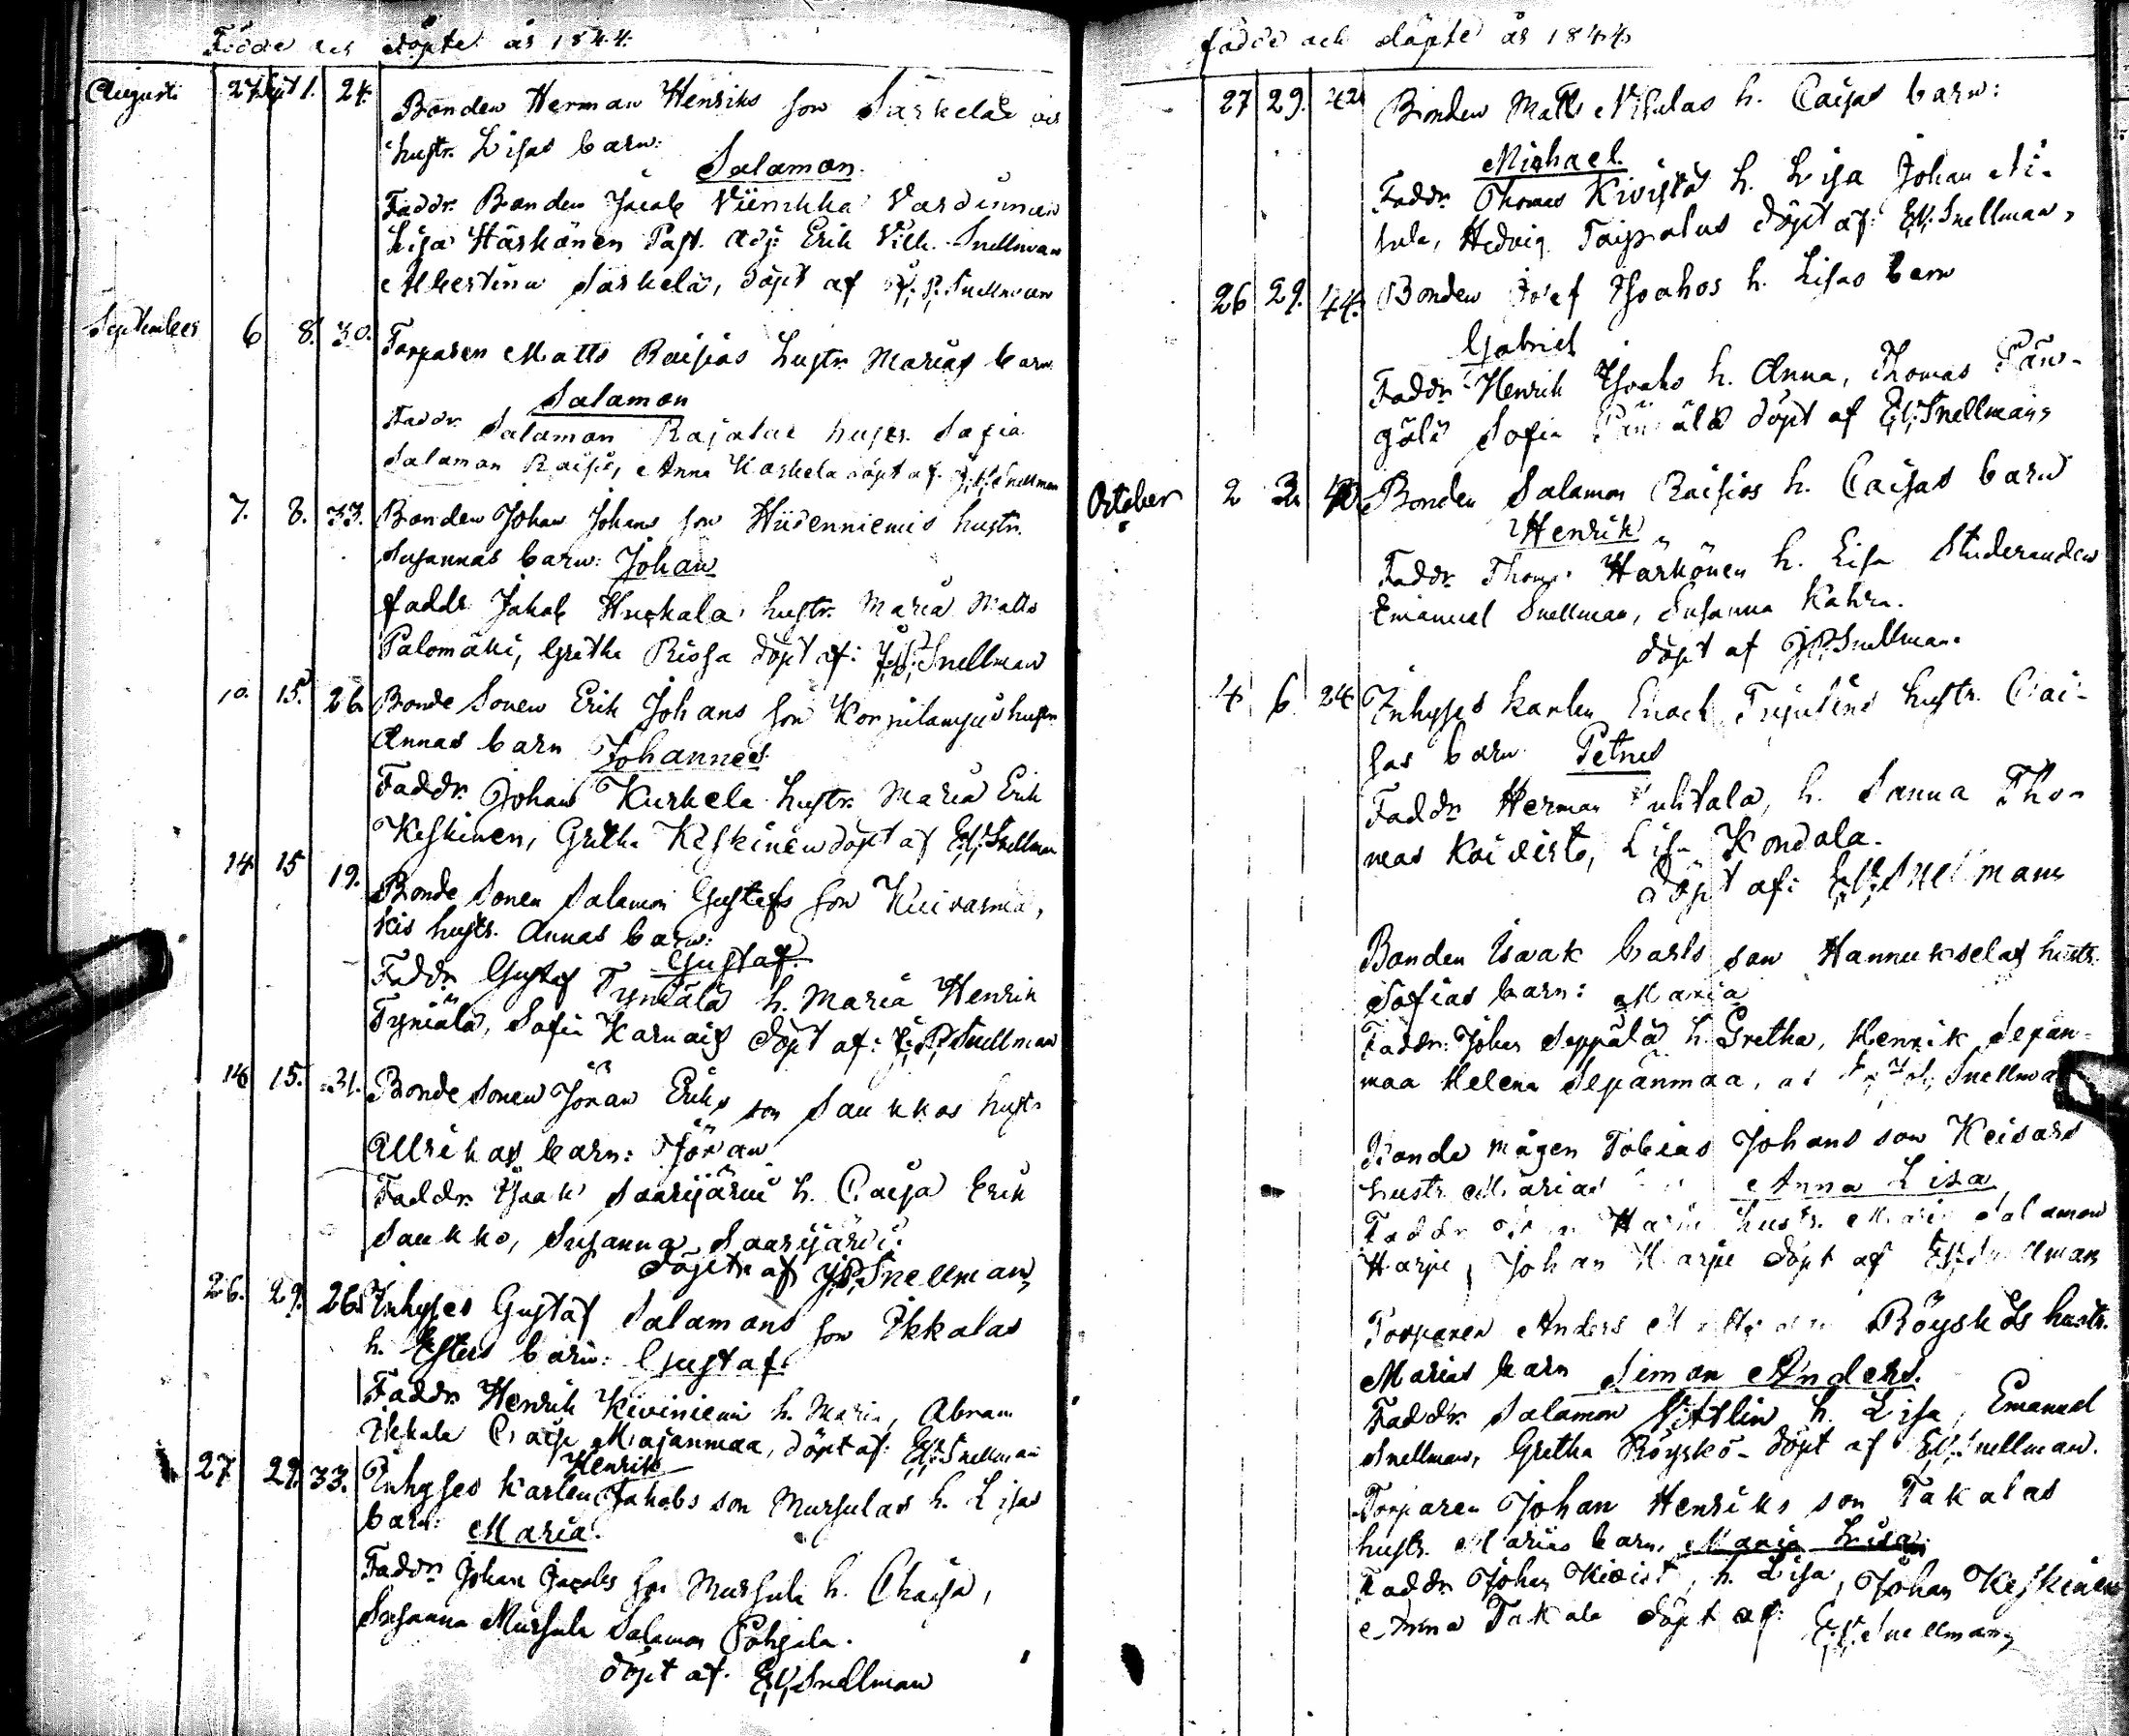 Födde och döpte år 1844.
Augusti 27 Sept 1. 24. Bonden Herman Henriks son Särkelas
hustr. Lisas barn:
Salamon.
Faddr. Bonden Jacob Viinikka Värdinnan
Lisa Härkönen Past. Adj: Erik Vilh. Snellman
Albertina Särkelä, döpt af J. P. Snellman
September 6 8. 30. Torparen Matts Raisias hustr. Marias barn
Salamon
Faddr. Salamon Rajalas hustr. Sofia
Salamon Raisio, Anna Karkela döpt af Snellman
7. 8. 33. Bonden Johan Johans son Hiidenniemis hustr.
Susannas barn: Johan
faddr Jakob Huckala hustr. Maria Matts
Palomäki, Gretha Rissa döpt af: Snellman
10. 15. 26. Bonde Sonen Erik Johans son hustr
Annas barn Johannes
Faddr. Johan Kurkela hustr. Maria Erik
Keskinen, Gretha Keskinen döpt af E.V. Snellman
14. 15 19. Bonde Sonen Salamon Gustafs son Kuivasmä,
kis hustr. Annas barn:
Gustaf.
Faddr Gustaf Tyniälä h. Maria Henrik
Tyniälä, Sofia Karnais döpt af: J. P. Snellman
14 15. 31. Bonde Sonen Jöran Eriks son Saukkos hustr
Ullrikas barn: Jöran
Faddr. Isaak Saarijärvi h. Caisa Erik
Saukko, Susanna Saarijärvi.
Döpt af J.P. Snellman,
26. 29. 26 Inhyses Gustaf Salamons son Ikkalas
h. Esters barn: Gustaf.
Faddr. Henrik Kiviniemi h. Maria, Abram
Ikkala Caisa Majanmaa, döpt af: E.V. Snellman
Henrik
27 29. 33. Inhyses karlen Jakobs son Mursulas h. Lisas
barn: Maria.
Faddr Johan Jacobs son Mursula h. Chaisa,
Susanna Mursula Salamon Pohjola.
döpt af. E.V. Snellman
födde och döpte år 1844
27 29. 42 Bonden Matts Nisulas h. Caisas barn:
Michael.
Faddr. Thomas Kivistö h. Lisa Johan Ni-
sula, Hedvig Taipalus döpt af: E.V. Snellman,
26 29. 44. Bonden Josef Isoahos h. Lisas barn
Gabriel
Faddr Henrik Isoaho h. Anna, Thomas
Sofia döpt af E.V. Snellman
October 2 3. 40 Bonden Salamon Raisios h. Caisas barn
Henrik
Faddr Thomas Härkönen h. Lisa Studeranden
Emanuel Snellman, Susanna Kahra.
döpt af J.P. Snellman.
4 6 24 Inhyses karlen Enoch hustr. Cai-
sas barn Petrus
Faddr Herman Puhtala, h. Sanna Tho-
mas Koivisto, Lisa Kondola.
Döpt af: E.V. Snellman
Bonden Isaak Carls son Hannukselas hustr.
Sofias barn: Maria
Faddr: Johan Seppälä h. Gretha, Henrik Sepän-
maa Helena Sepänmaa, Snellman
Bonde mågen Tobias Johans son Keisars
hustr. Marias Anna Lisa
Faddr Harju hustr. Maria Salamon
Harju, Johan Harju döpt af E.V. Snellman
Torparen Anders Röyskös hustr.
Marias barn Simon Anders.
Faddr. Salamon Vittlin h. Lisa, Emanuel
Snellman, Gretha Röyskö döpt af E.V. Snellman.
Torparen Johan Henriks son Takalas
hustr. Marias barn, Maria Lisa.
Faddr Johan Kivist, h. Lisa, Johan Keskinen
Anna Takala döpt af: E.V. Snellman,